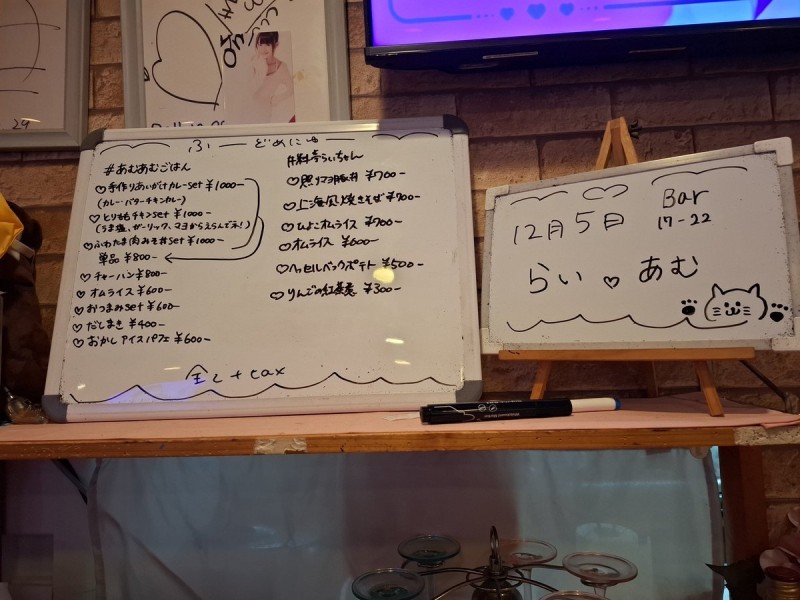 29
ふーどめにゅ
#あむあむごはん
♡手作りあいがけカレーset ¥1000-
(カレー・バターチキンカレー)
♡とりももチキンset ¥1000-
(うま塩、ガーリック、マヨからえらんでネ!)
♡ふわたま肉みそ丼set ¥1000-
単品 ¥800-
♡チャーハン ¥800-
♡オムライス ¥600-
♡おつまみset ¥600-
♡だしまき ¥400-
♡おかしアイスパフェ ¥600-
#料亭らいちゃん
♡照りマヨ豚丼 ¥700-
♡上海風焼きそば ¥700-
♡ひよこオムライス ¥700-
♡オムライス ¥600-
♡ハッセルバックポテト ¥500-
♡りんごの紅茶煮 ¥300-
全て+tax
12月5日
Bar
17-22
らい♡あむ